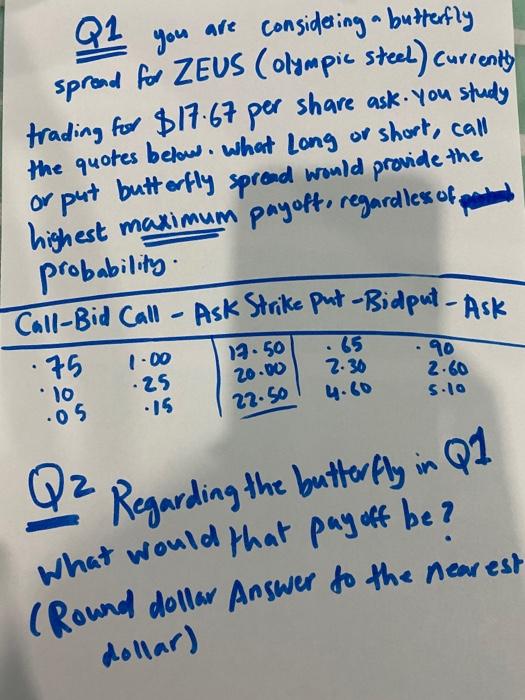 Q1 you are considering a butterfly
spread for ZEUS (olympic steel) currently
trading for $17.67 per share ask. You study
the quotes below. what Long or short, call
or put butterfly spread would provide the
highest maximum payoff, regardless of
probability.
Call-Bid Call - Ask Strike Put-Bid put - Ask
.75 1.00 17.50 .65 .90
.10 .25 20.00 2.30 2.60
.05 .15 22.50 4.60 5.10
Q2 Regarding the butterfly in Q1
what would that payoff be?
(Round dollar Answer to the nearest
dollar)